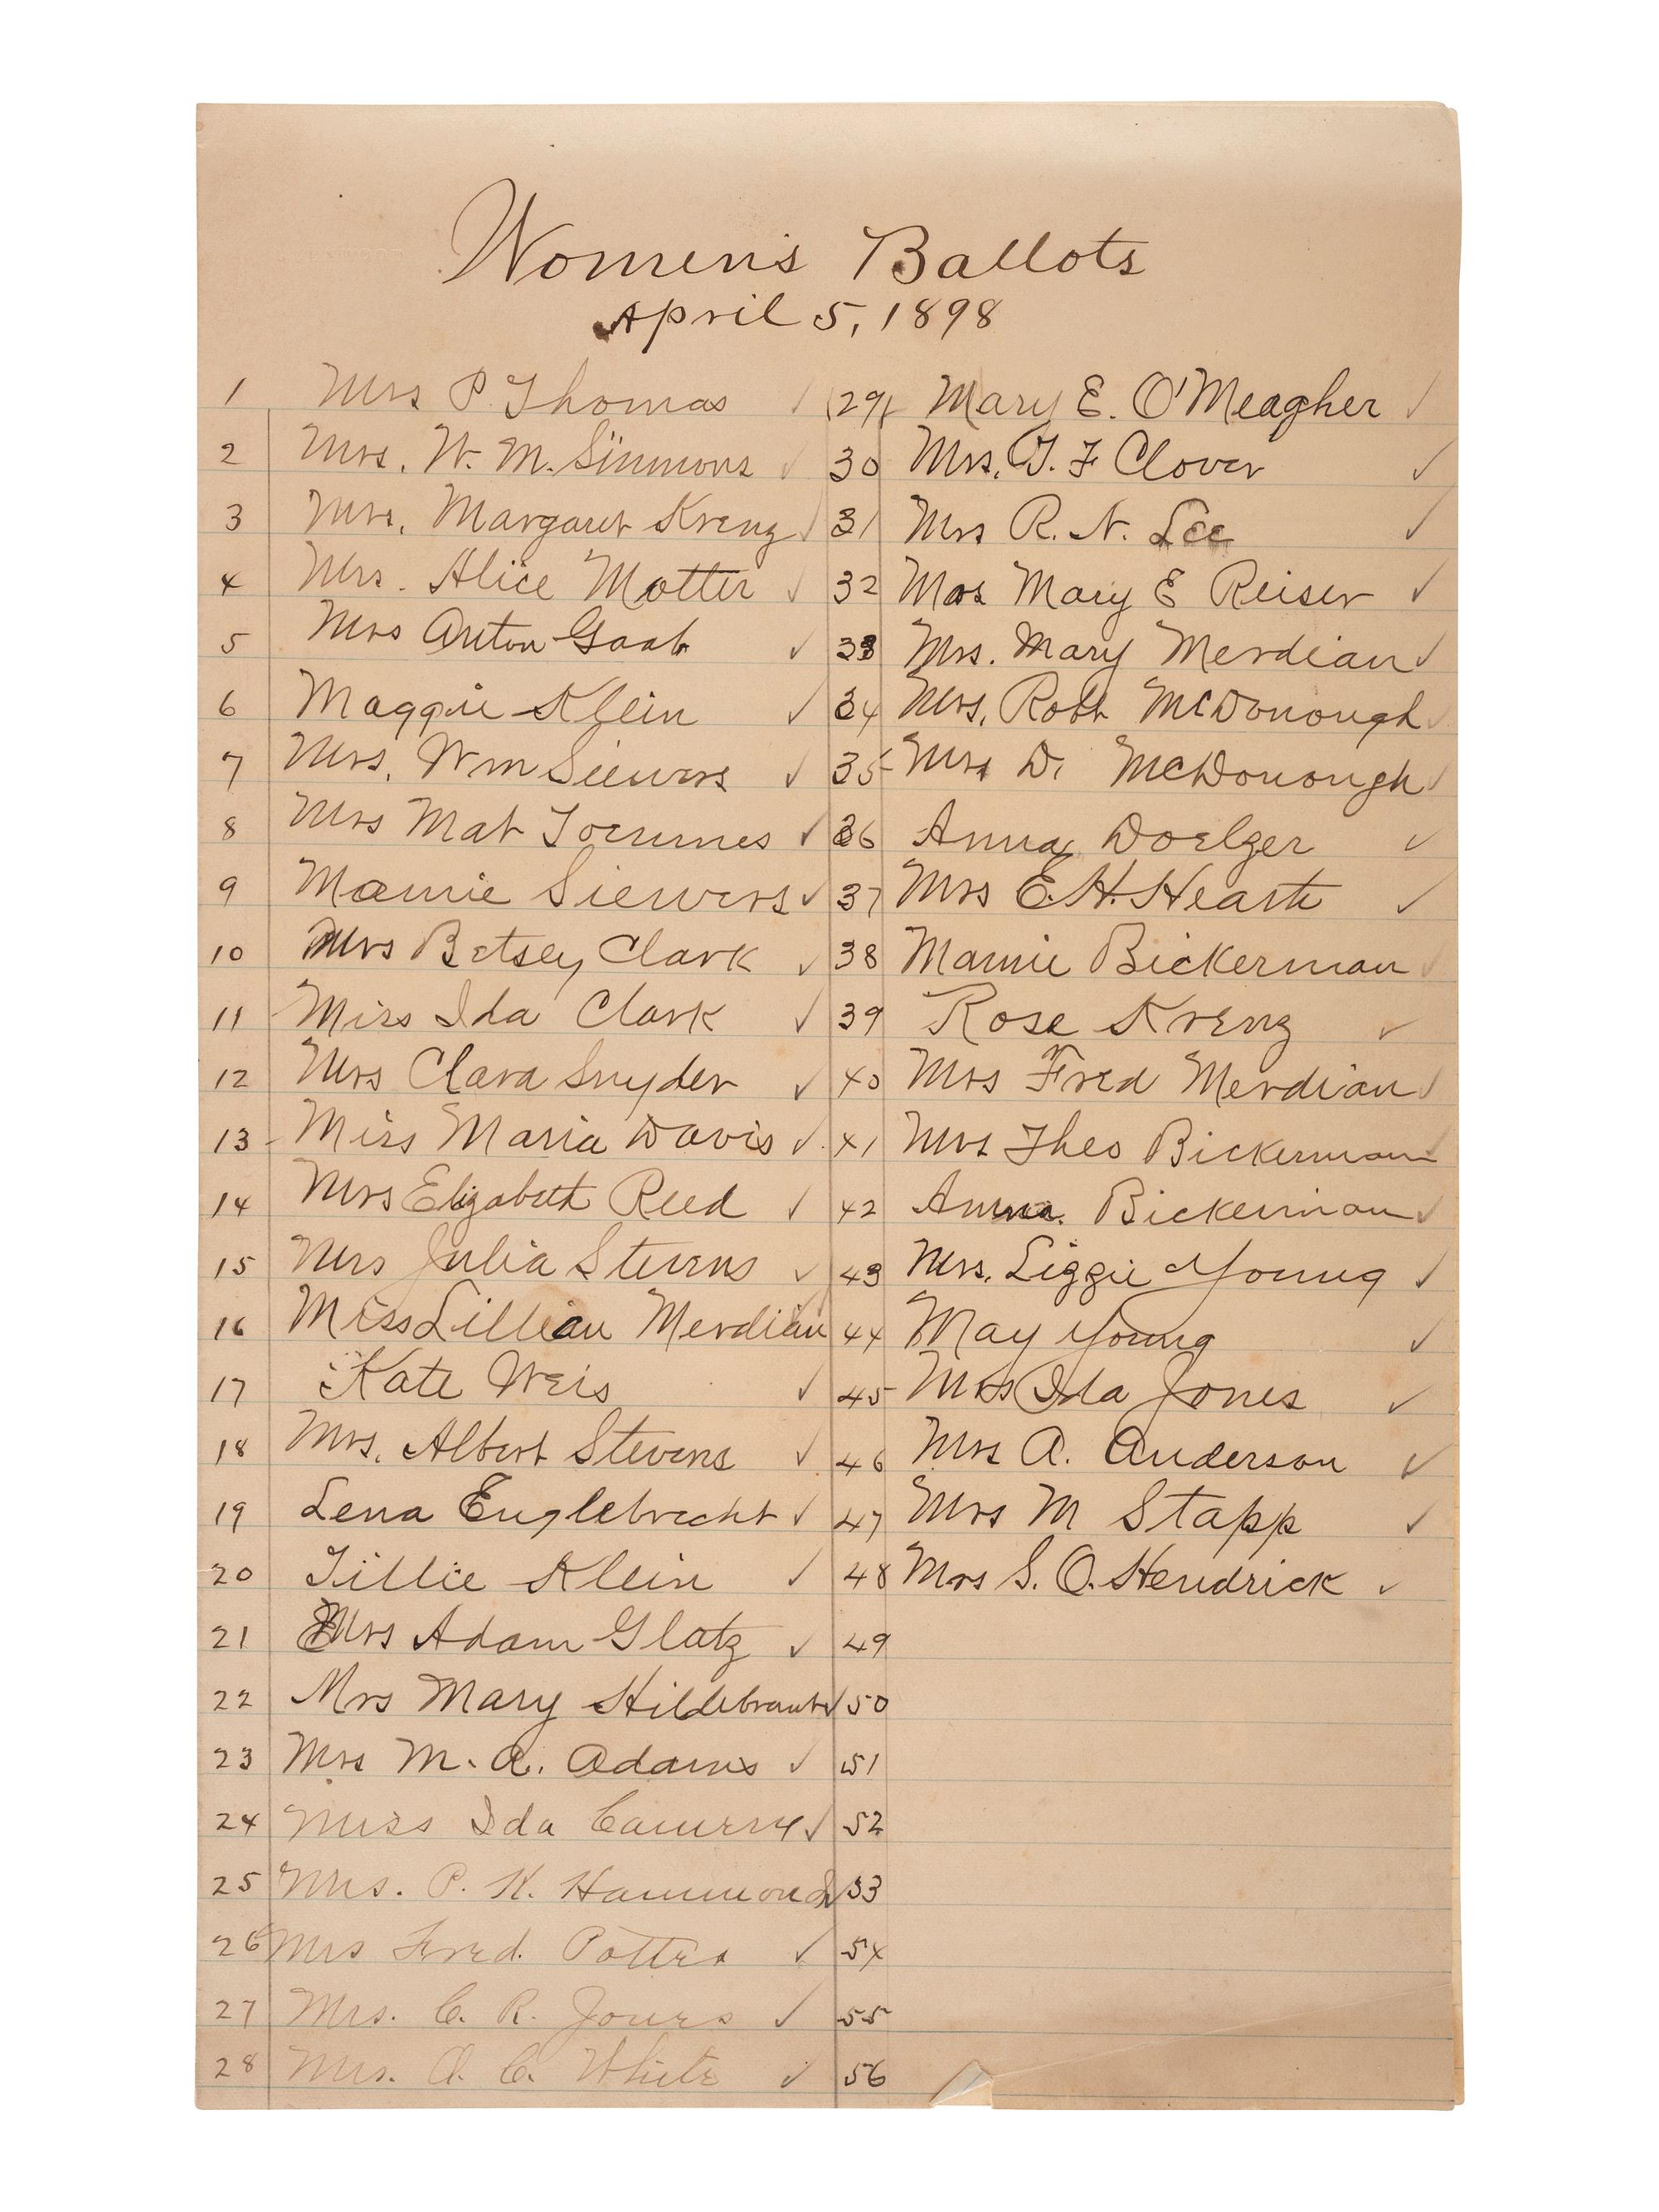 Women's Ballots
April 5, 1898
1 Mrs P. Thomas ✓
2 Mrs. W. M. Simmons ✓
3 Mrs. Margaret Krenz ✓
4 Mrs. Alice Motter ✓
5 Mrs Anton Gaab ✓
6 Maggie Klein ✓
7 Mrs. Wm Siewers ✓
8 Mrs Mat Toennes ✓
9 Mamie Siewers ✓
10 Mrs Betsey Clark ✓
11 Miss Ida Clark ✓
12 Mrs Clara Snyder ✓
13 Miss Maria Davis ✓
14 Mrs Elizabeth Reed ✓
15 Mrs Julia Stevens ✓
16 Miss Lillian Merdian
17 Kate Weis ✓
18 Mrs. Albert Stevens ✓
19 Lena Englebrecht ✓
20 Tillie Klein ✓
21 Mrs Adam Glatz ✓
22 Mrs Mary Hildebrant ✓
23 Mrs M. A. Adams ✓
24 Miss Ida Camery ✓
25 Mrs. P. K. Hammond ✓
26 Mrs Fred. Potter ✓
27 Mrs. C. R. Jones ✓
28 Mrs. A. C. White ✓
29 Mary E. O'Meagher ✓
30 Mrs. T. F Clover ✓
31 Mrs R. N. Lee ✓
32 Mrs Mary E Reiser ✓
33 Mrs. Mary Merdian ✓
34 Mrs. Robt McDonough ✓
35 Mrs D. McDonough ✓
36 Anna Doelger ✓
37 Mrs E. H. Hearte ✓
38 Mamie Bickerman ✓
39 Rose Krenz ✓
40 Mrs Fred Merdian ✓
41 Mrs Theo Bickerman ✓
42 Anna Bickerman ✓
43 Mrs. Lizzie Young ✓
44 May Young ✓
45 Mrs Ida Jones ✓
46 Mrs A. Anderson ✓
47 Mrs M Stapp ✓
48 Mrs S. O. Hendrick ✓
49
50
51
52
53
54
55
56